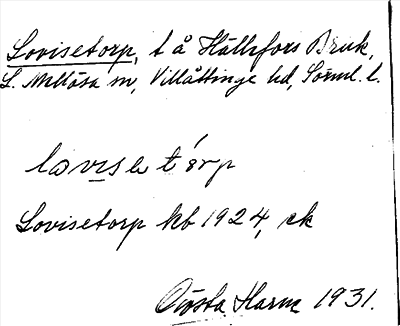 Lovisetorp, t å Hälleforss Bruk,
L. Mellösa sn, Villåttinge hd, Sörml. l.
lovisetórp
Lovisetorp kb 1924, ek
Gösta Harm 1931.